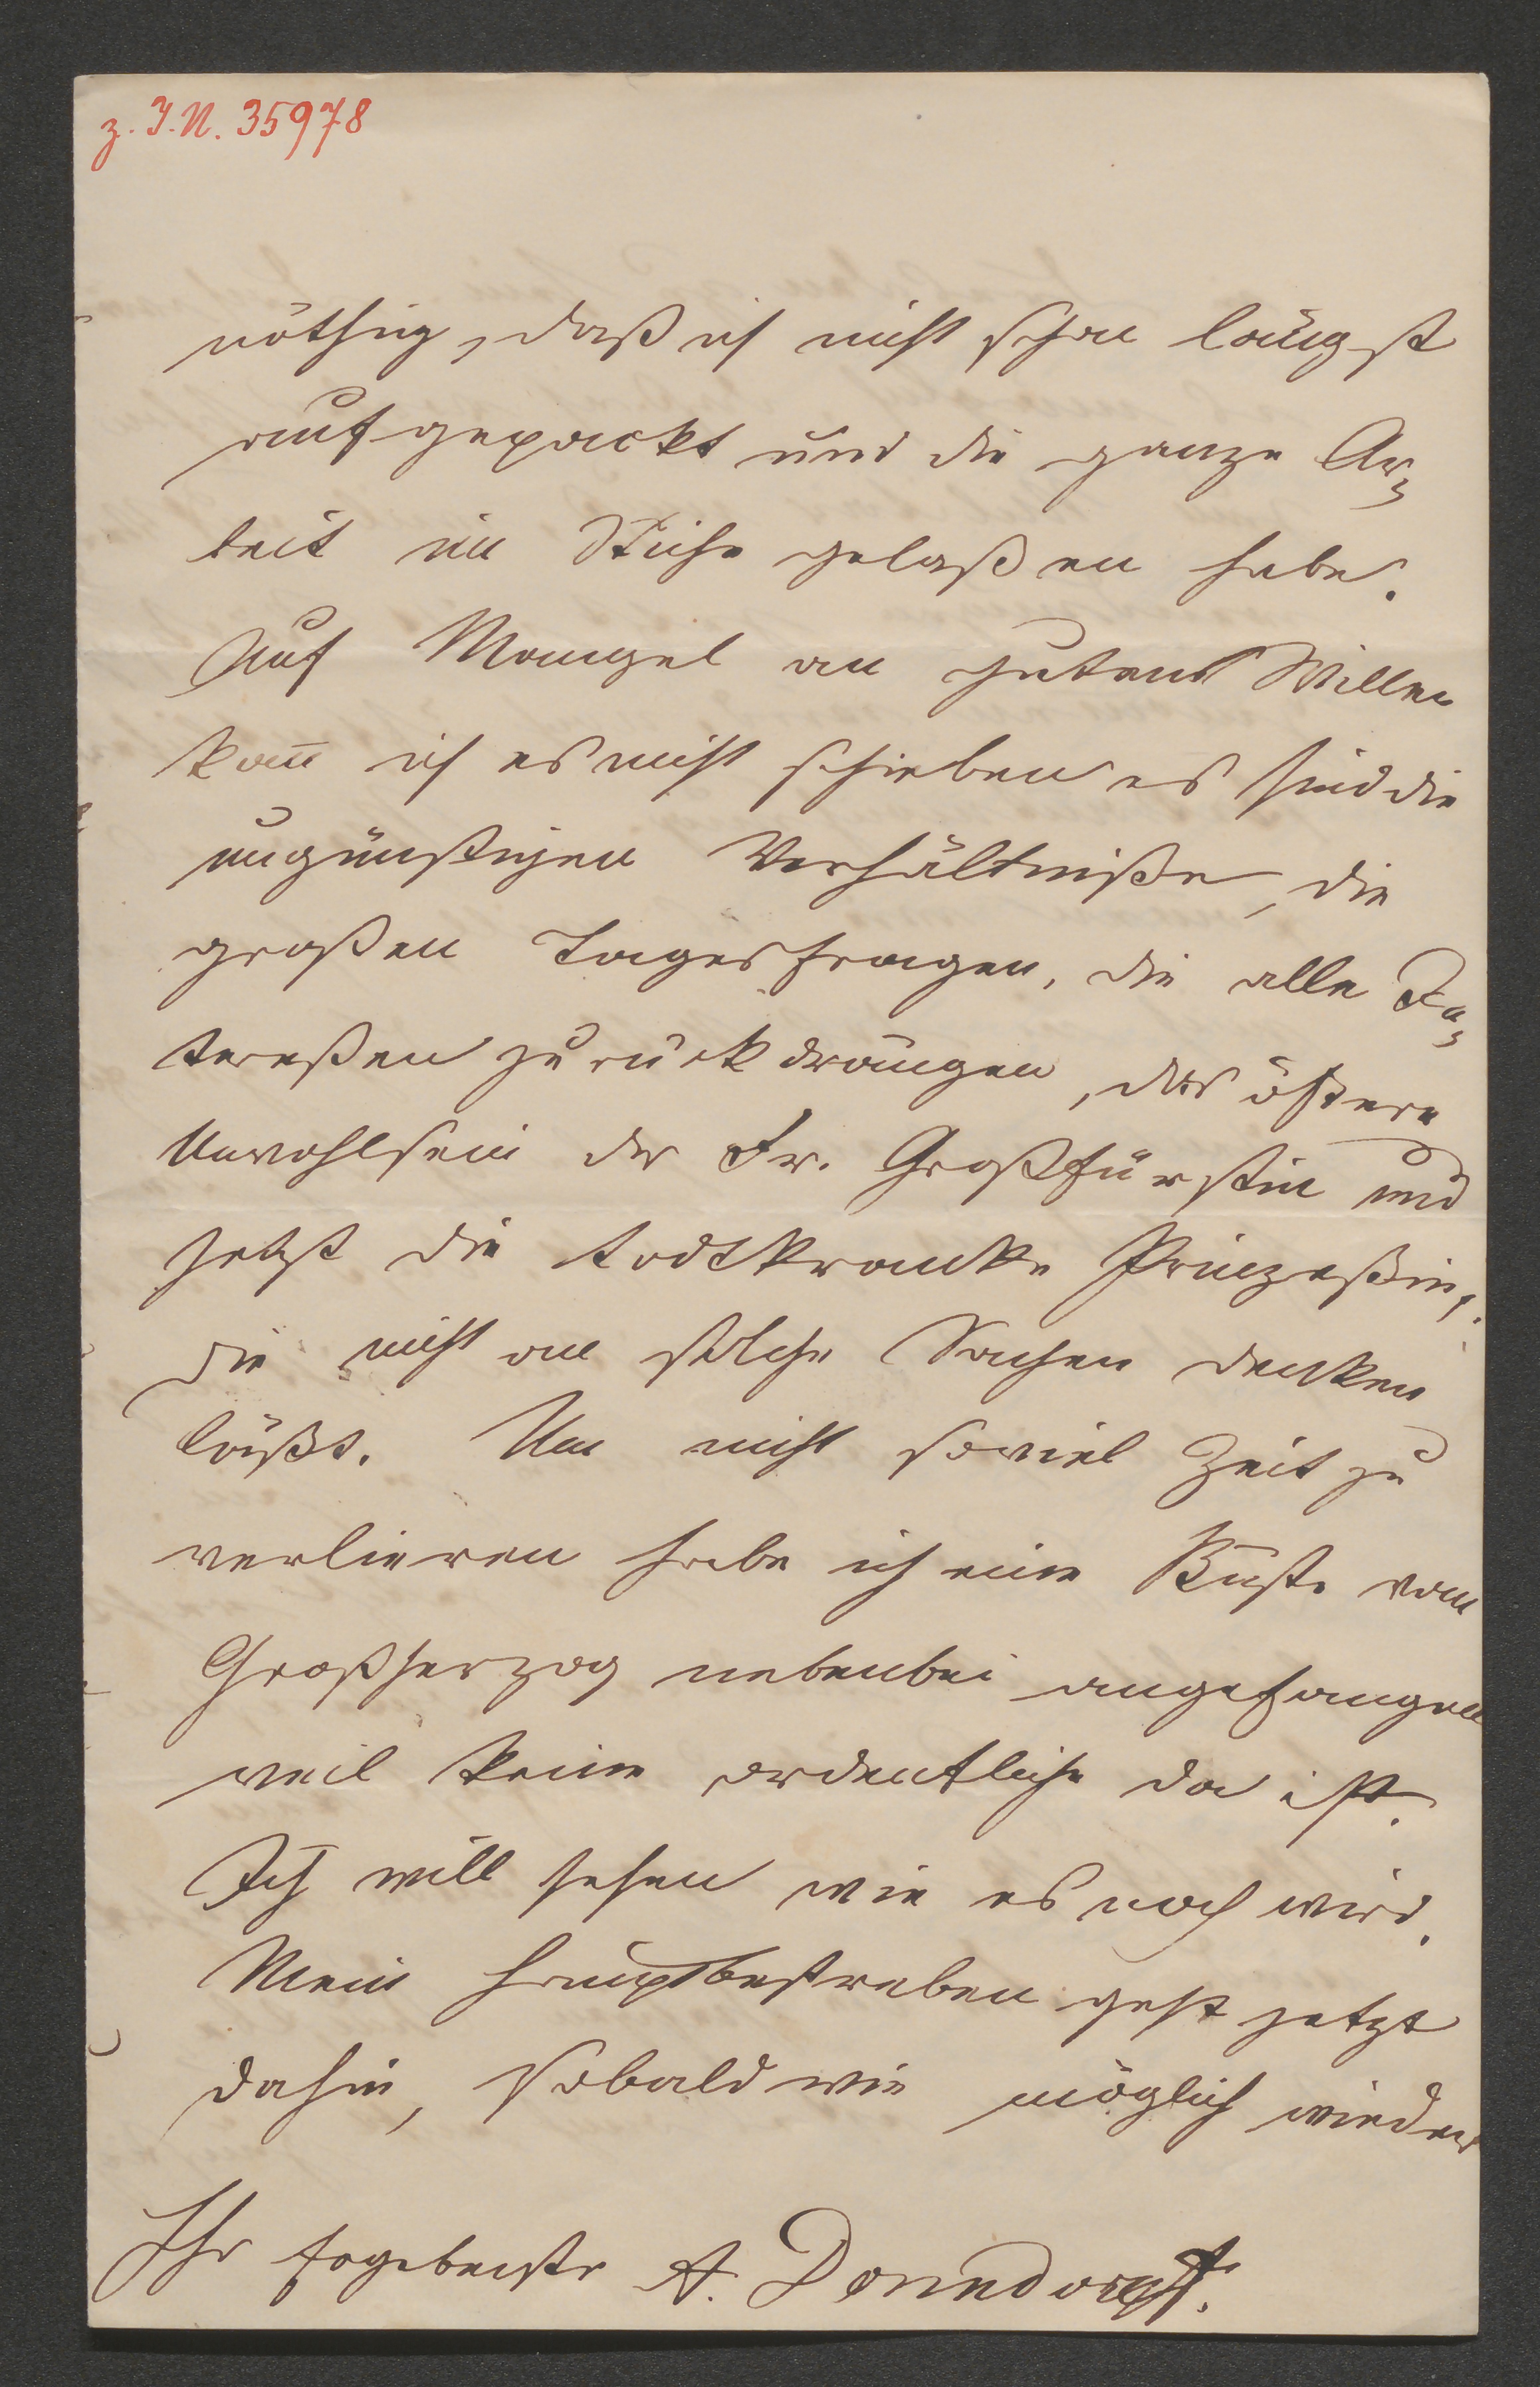 z. I.N. 35978
nöthig, daß ich nicht schon längst
aufgepackt und die ganze Ar-
beit im Stiche gelaßen habe.
Auf Mangel an gutens Willen
kan̄ ich es nicht schieben es sind die
ungünstigen Verhältniße, die
großen Tagesfragen, die alle In-
tereßen zurückdrängen, das öftere
Unwohlsein der Fr. Großfürstin und
jetzt die todtkranke Prinzeßin,
die nicht an solche Sachen denken
läßt. Um nicht soviel Zeit zu
verlieren habe ich eine Büste vom
Großherzog nebenbei angefangen
weil keine ordentliche da ist.
Ich will sehen wie es noch wird.
Mein Hauptbestreben geht jetzt
dahin, sobald wie möglich wieder
Ihr ergebenster A. Donndorf.